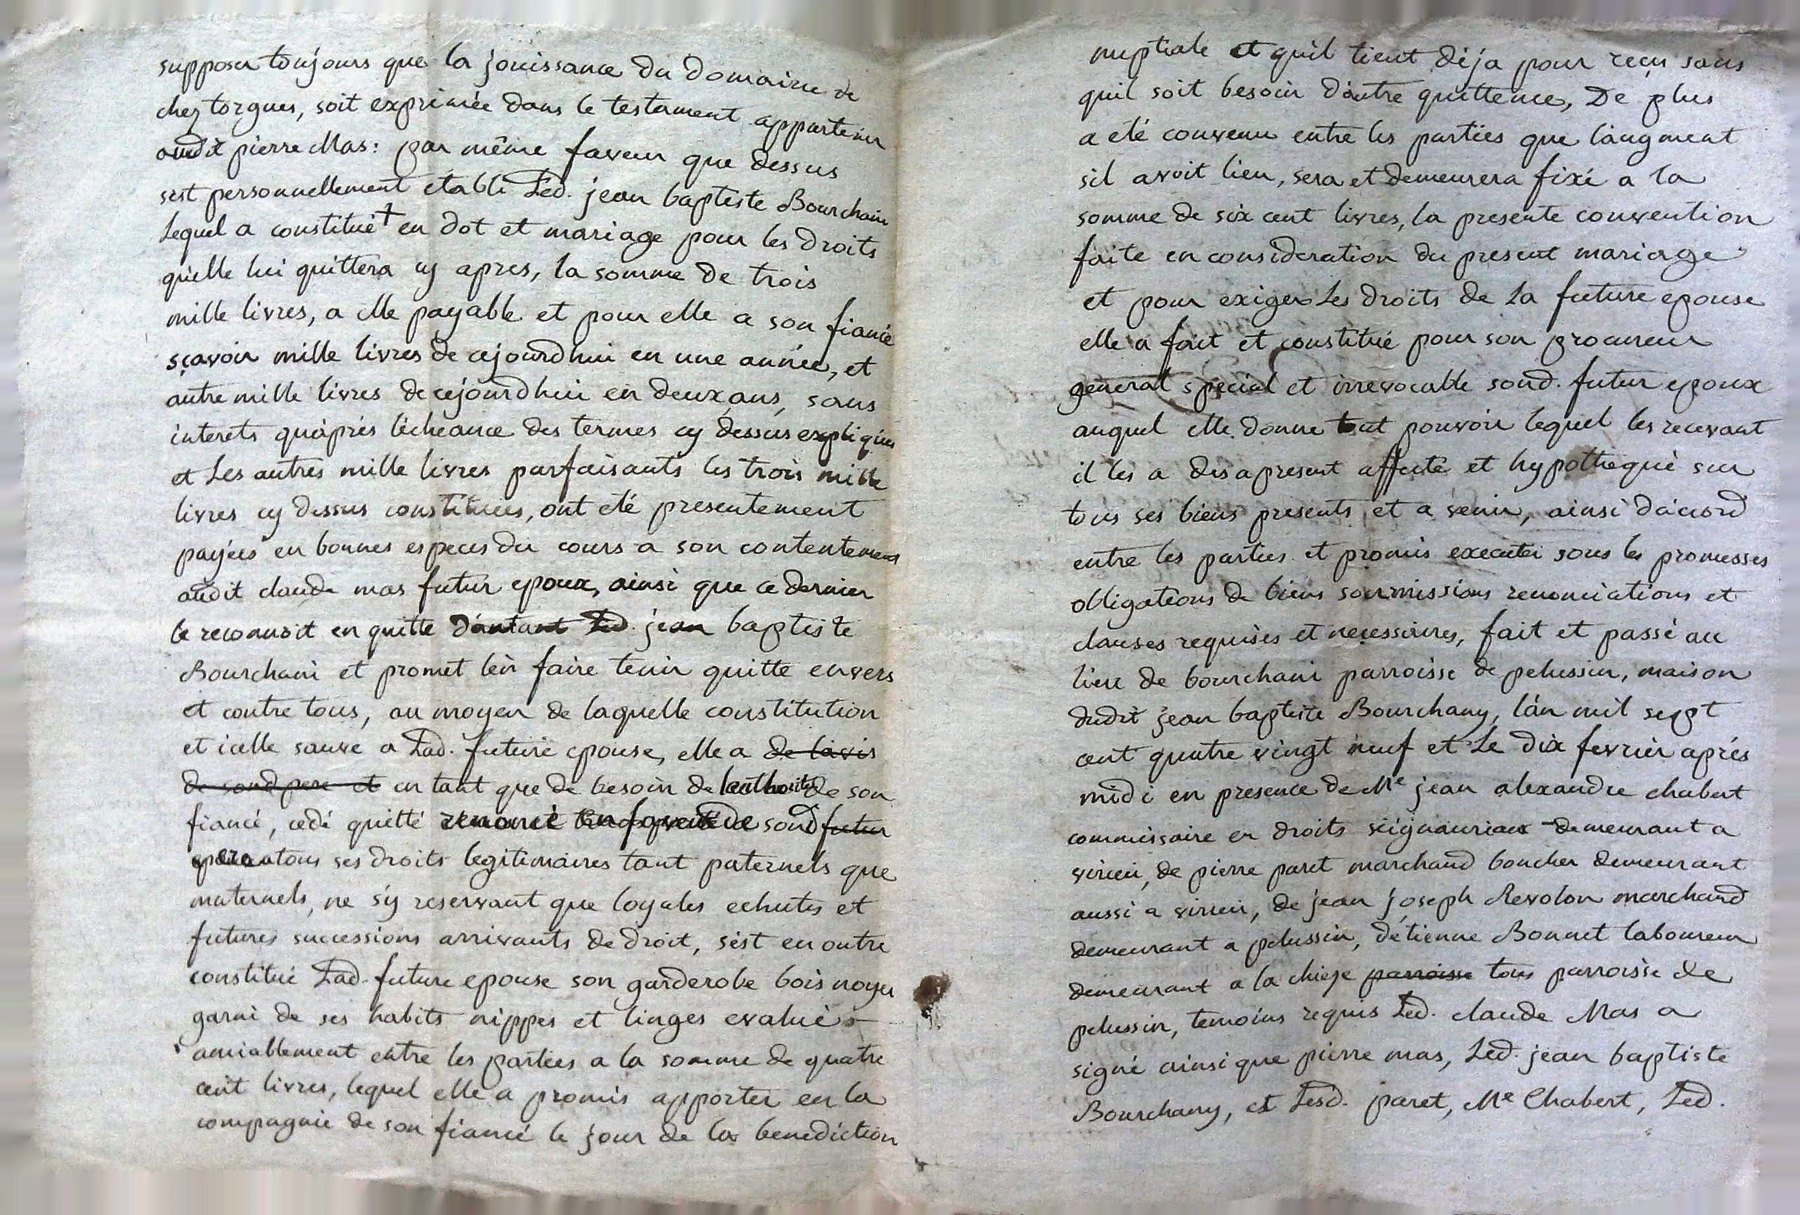 supposer toujours que la jouissance du domaine de
chez torgues, soit exprimée dans le testament appartenir
audit pierre Mas: par même faveur que dessus
sest personnellement etabli Led. jean baptiste Bourchani
Lequel a constitué + en dot et mariage pour les droits
quelle lui quittera cy apres, la somme de trois
mille livres, a elle payable et pour elle a son fiancé
sçavoir mille livres de cejourdhui en une année, et
autre mille livres de cejourdhui en deux ans, sans
interets qu'aprés l'écheance des termes cy dessus expliqués
et Les autres mille livres parfaisants les trois mille
livres cy dessus constituées, ont eté presentement
payées en bonnes especes du cours a son contentement
audit claude mas futur epoux, ainsi que ce dernier
le reconnoit en quitte d'autant Led. jean baptiste
Bourchani et promet l'en faire tenir quitte envers
et contre tous, au moyen de laquelle constitution
et icelle sauve a Lad. future epouse, elle a de l'avis
de sond pere et en tant que de besoin de l'authorité de son
fiancé, cedé quitté renoncé en faveur de sond futur
pere a tous ses droits legitimaires tant paternels que
maternels, ne s'y reservant que loyales echutes et
futures successions arrivants de droit, s'est en outre
constitué Lad. future epouse son garderobe bois noyer
garni de ses habits nippes et linges evalué
amiablement entre les parties a la somme de quatre
cent livres, lequel elle a promis apporter en la
compagnie de son fiancé le jour de la benediction
nuptiale et quil tient déja pour reçu sans
quil soit besoin d'autre quittence, De plus
a été convenu entre les parties que l'augment
sil avoit lieu, sera et demeurera fixé a la
somme de six cent livres, la presente convention
faite en consideration du present mariage
et pour exiger Les droits de La future epouse
elle a fait et constitué pour son procureur
general special et irrevocable sond. futur epoux
auquel elle donne tout pouvoir lequel les recevant
il les a des apresent affecté et hypothequé sur
tous ses biens presents et a venir, ainsi d'accord
entre les parties et promis executer sous les promesses
obligations de biens soumissions renonciations et
clauses requises et necessaires, fait et passé au
lieu de bourchani parroisse de pelussin, maison
dudit jean baptiste Bourchany, l'an mil sept
cent quatre vingt neuf et Le dix fevrier aprés
midi en presence de Me jean alexandre chabert
commissaire en droits seigneuriaux demeurant a
virieu, de pierre paret marchand boucher demeurant
aussi a virieu, de jean joseph Revolon marchand
demeurant a pelussin, d'etienne Bonnet laboureur
demeurant a la chieze parroisse tous parroisse de
pelussin, temoins requis Led. claude Mas a
signé ainsi que pierre mas, Led. jean baptiste
Bourchany, et Lesd. paret, Me Chabert, Led.